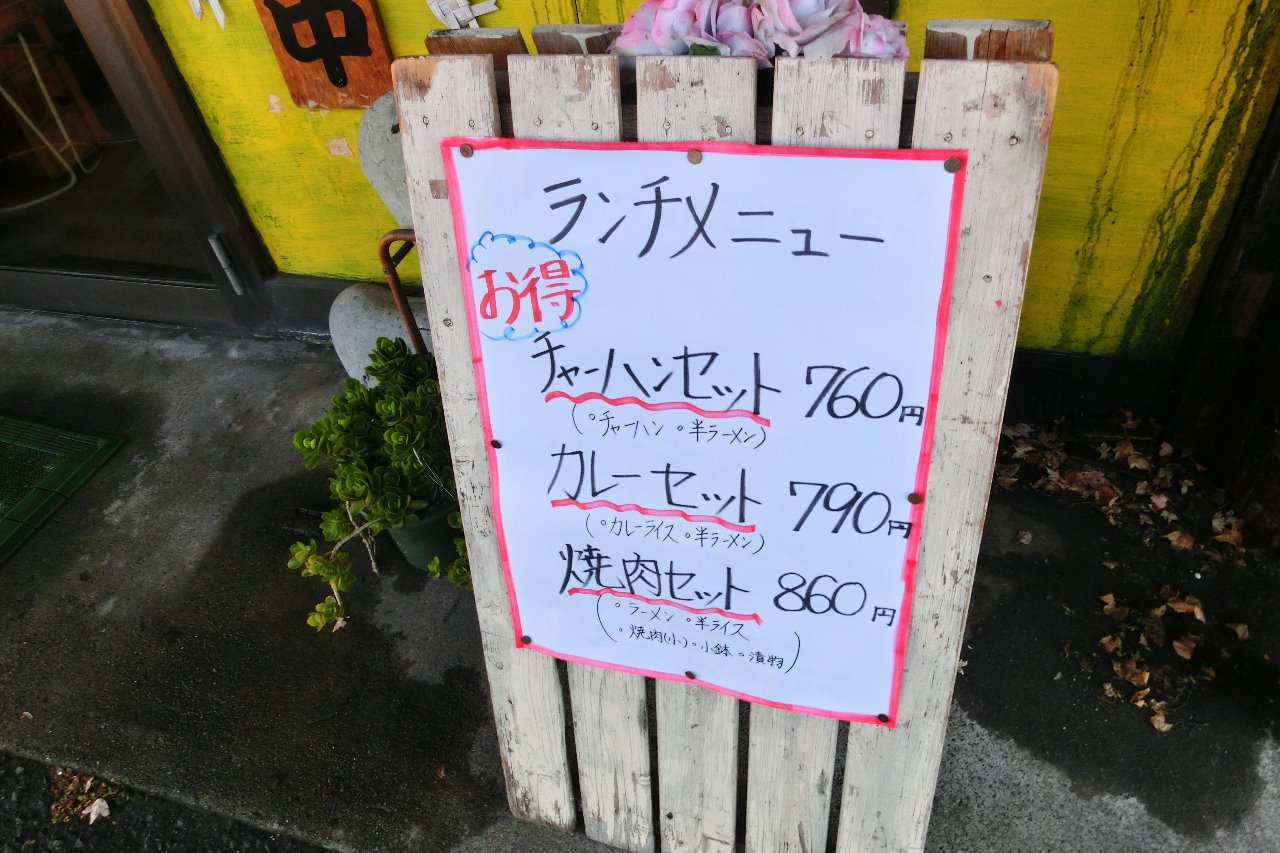 中
ランチメニュー
お得
チャーハンセット 760円
(°チャーハン °半ラーメン)
カレーセット 790円
(°カレーライス °半ラーメン)
焼肉セット 860円
(°ラーメン °半ライス
°焼肉(小) °小鉢 °漬物)